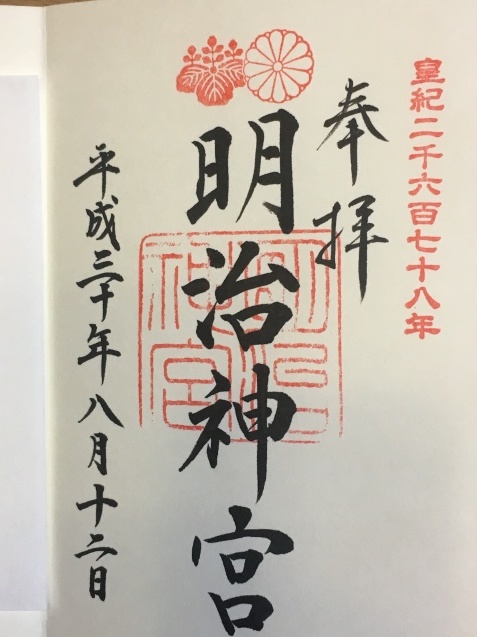 皇紀二千六百七十八年
奉拝
明治神宮
明治神宮
平成三十年八月十二日